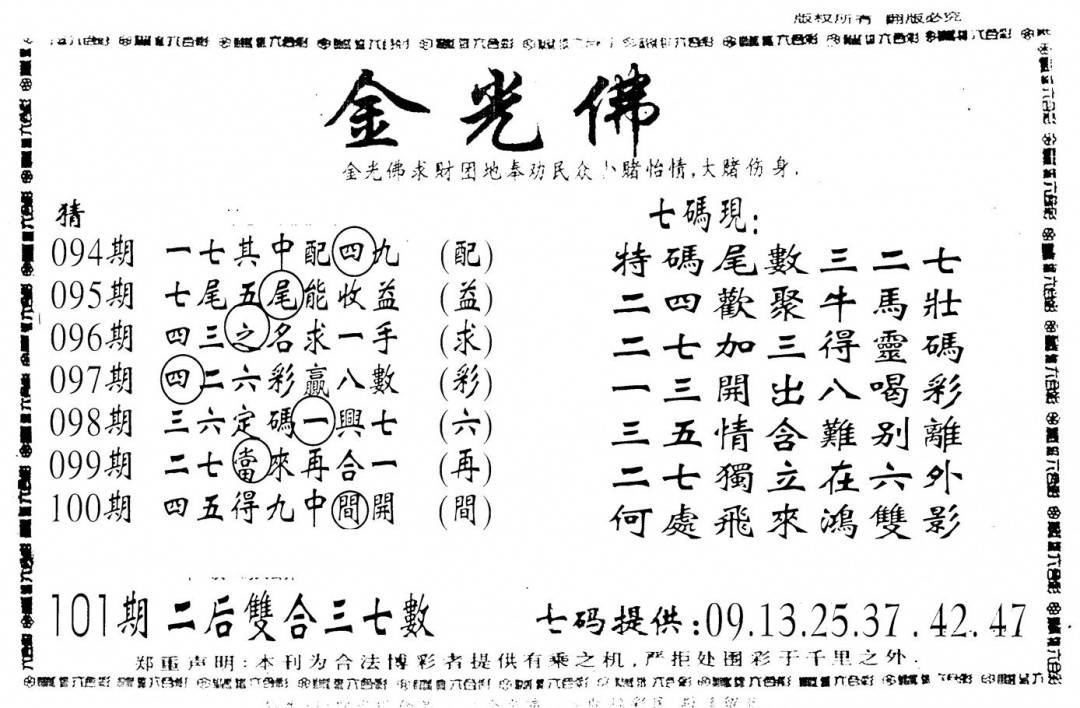 版权所有 翻版必究
金光佛
金光佛求財团地奉劝民众小赌怡情,大赌伤身.
猜
094期 一七其中配四九 (配)
095期 七尾五尾能收益 (益)
096期 四三之名求一手 (求)
097期 四二六彩贏八數 (彩)
098期 三六定碼一興七 (六)
099期 二七當來再合一 (再)
100期 四五得九中間開 (間)
七碼現:
特碼尾數三二七
二四歡聚牛馬壯
二七加三得靈碼
一三開出八喝彩
三五情含難别離
二七獨立在六外
何處飛來鴻雙影
101期 二后雙合三七數
七码提供:09.13.25.37.42.47
郑重声明:本刊为合法博彩者提供有乘之机,严拒处围彩于千里之外.